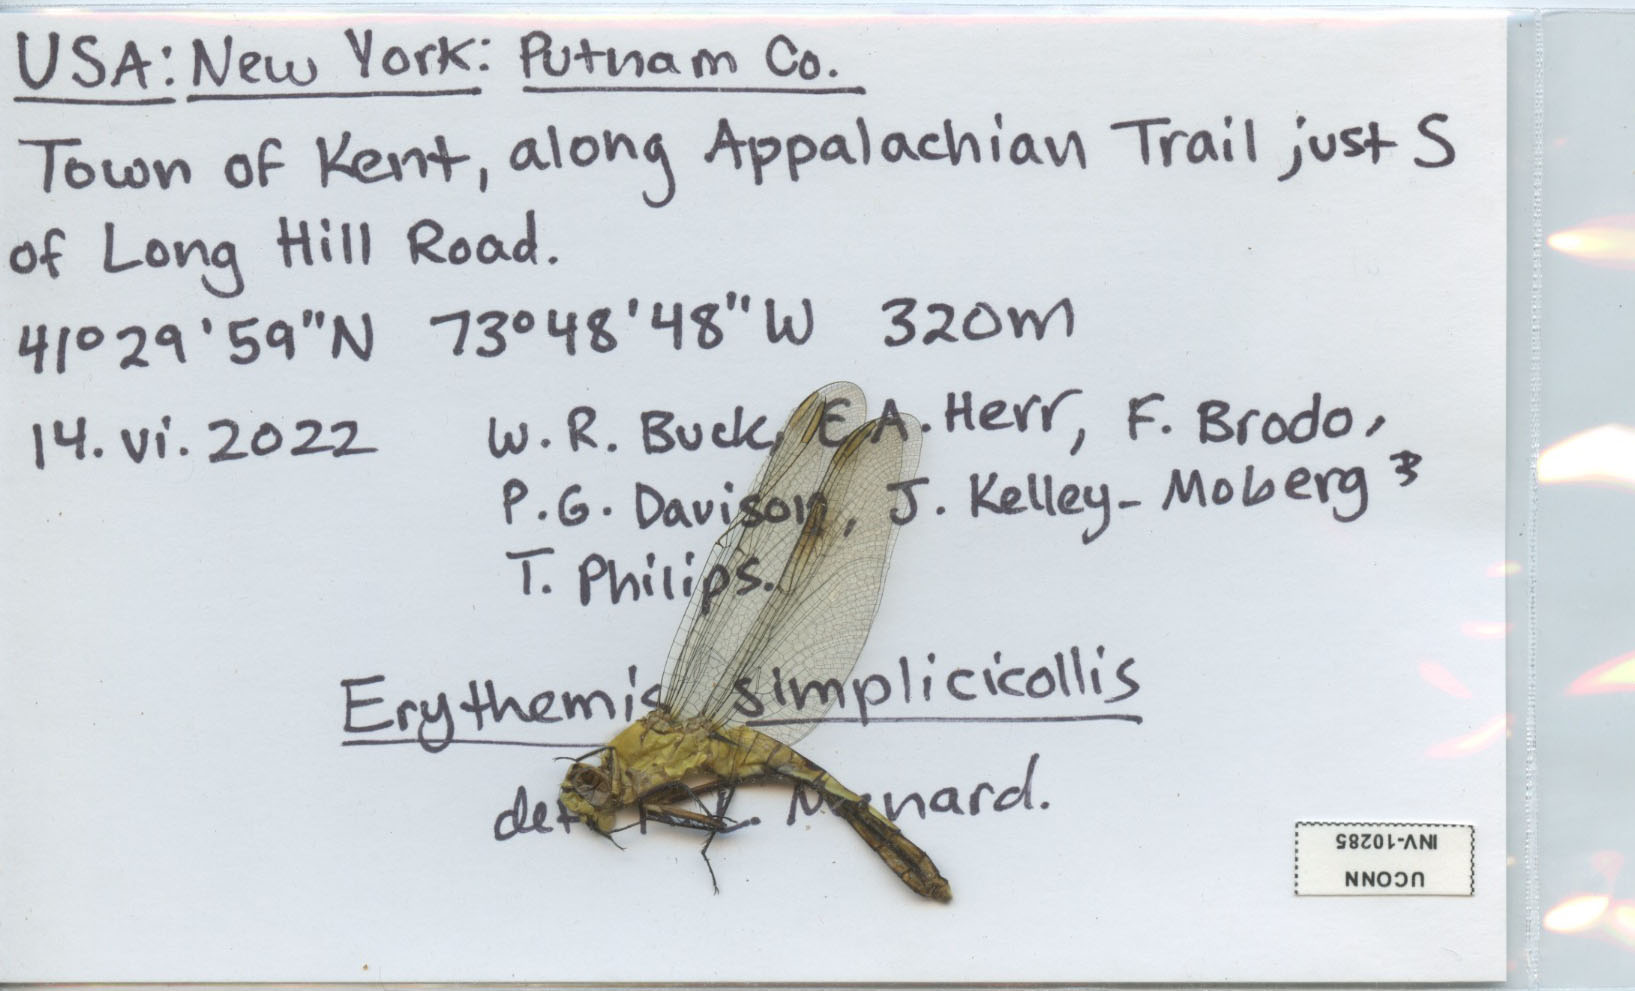 USA: New York: Putnam Co.
Town of Kent, along Appalachian Trail just S
of Long Hill Road.
41°29'59"N 73°48'48"W 320m
14.vi.2022 W.R. Buck, E.A. Herr, F. Brodo,
P.G. Davison, J. Kelley-Moberg &
T. Philips.
Erythemis simplicicollis
det. L.
UCONN
INV-10285